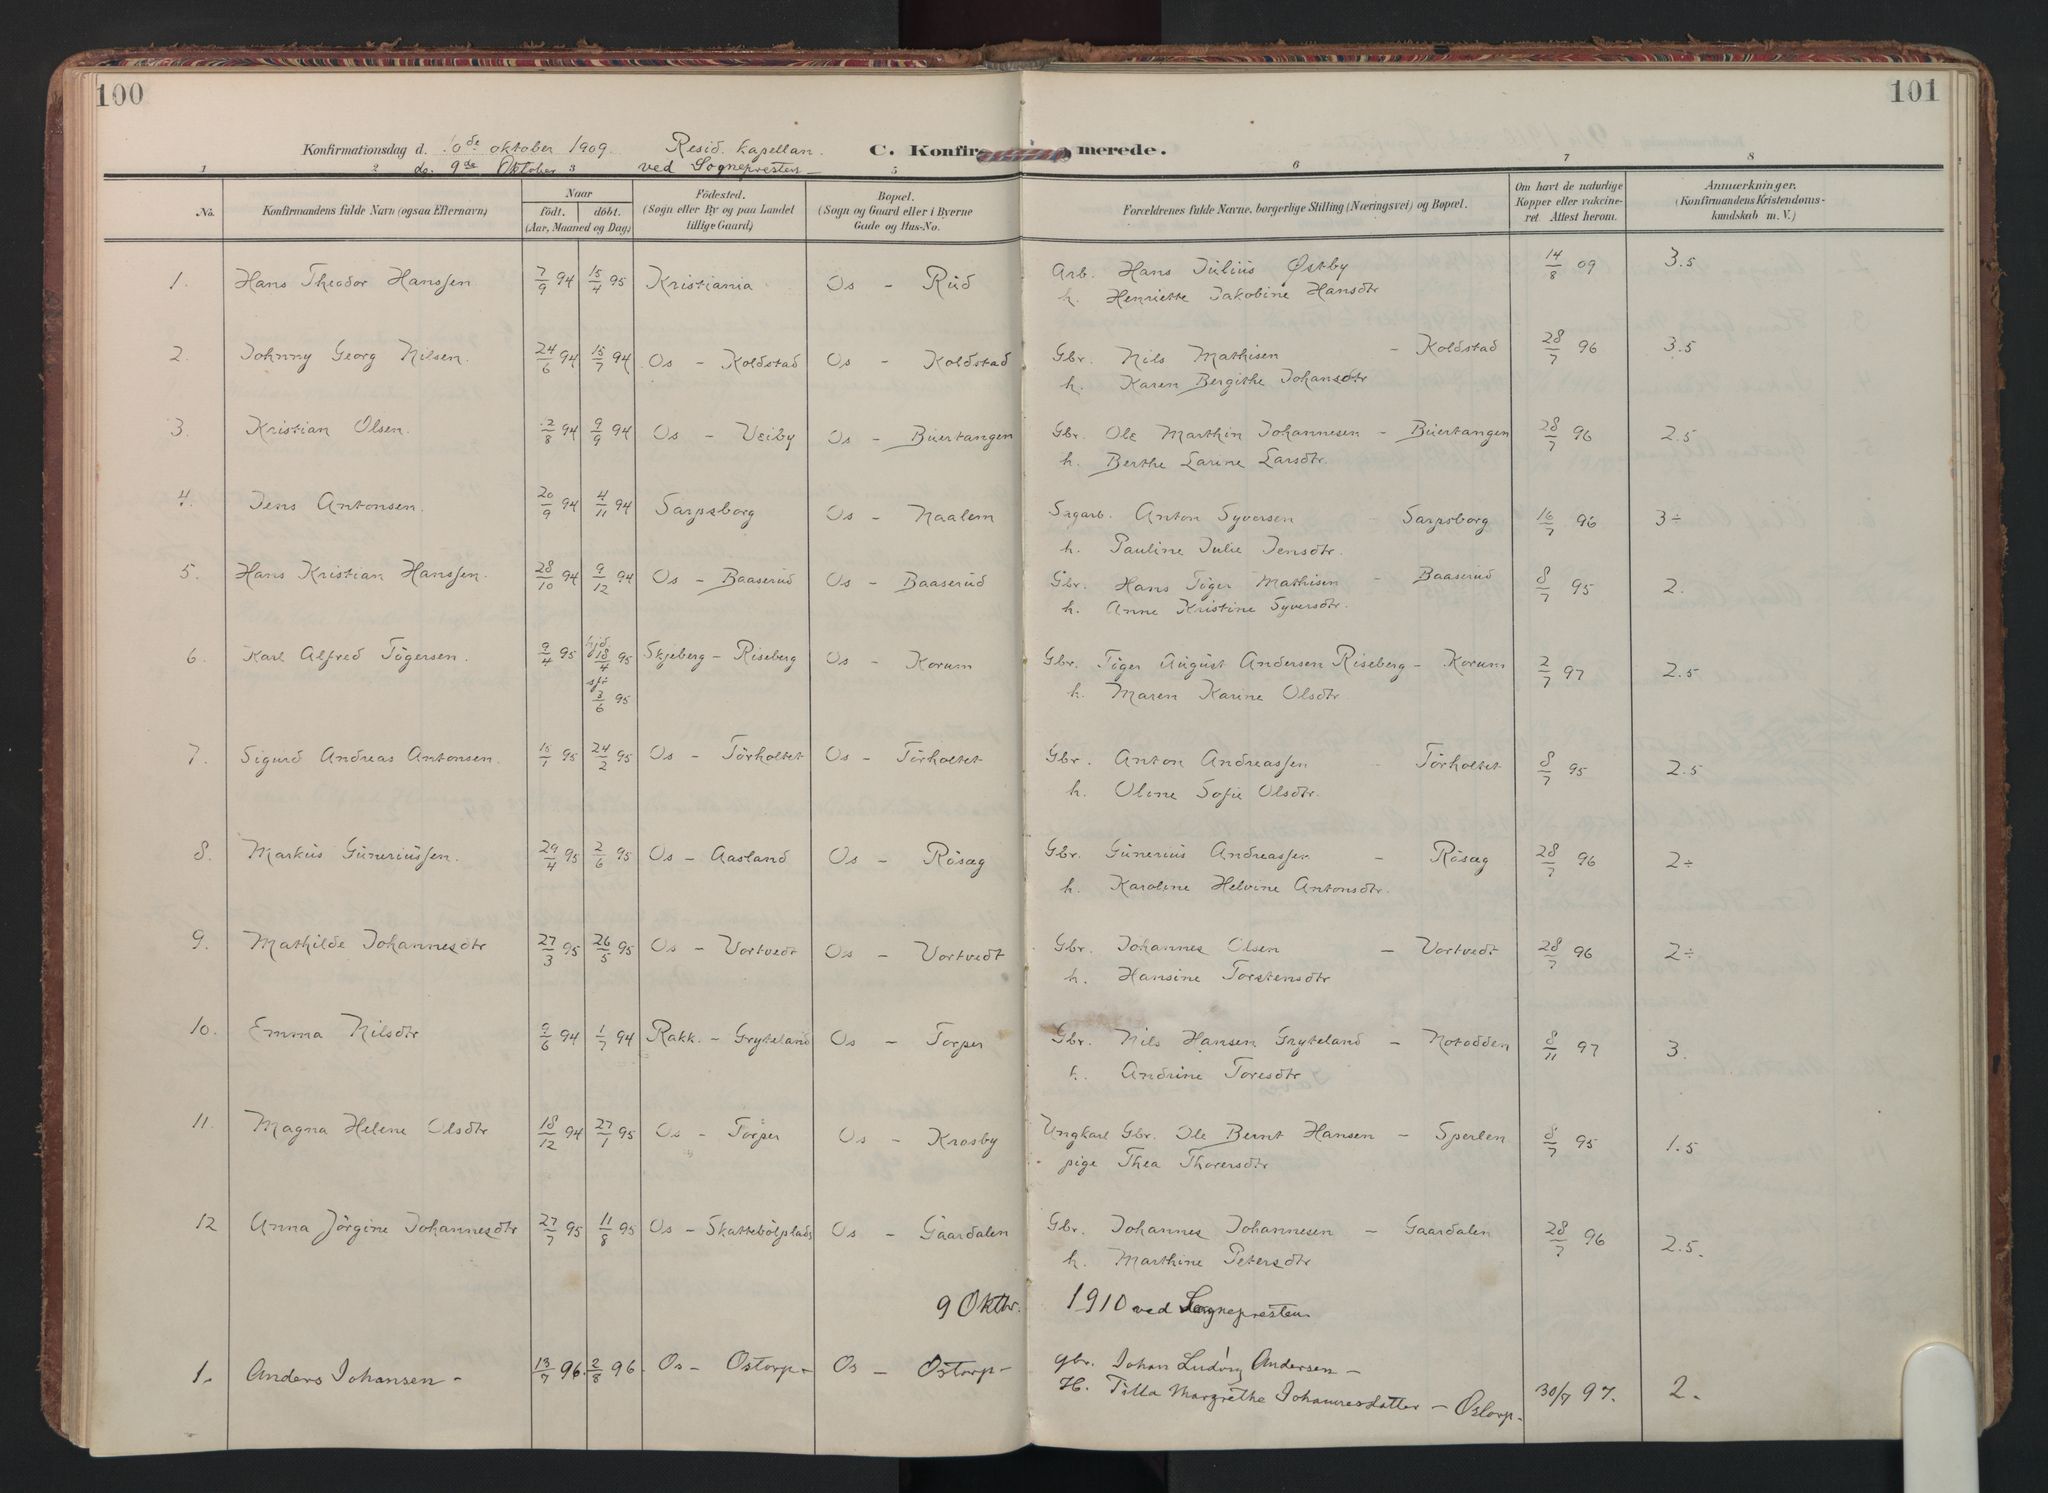 100
101
Konfirmationsdag d. 10de oktober 1909. Resid. Kapellan. C. Konfirmerede.
do. 9de Oktober ved Sognepresten
1 2 3 5 6 7 8
No. Konfirmandens fulde Navn (ogsaa Efternavn) Naar født. døbt. (Aar, Maaned og Dag.) Fødested. (Sogn eller By og paa Landet tillige Gaard.) Bopæl. (Sogn og Gaard eller i Byerne Gade og Hus-No. Forældrenes fulde Navne, borgerlige Stilling (Næringsvei) og Bopæl. Om havt de naturlige Kopper eller vakcineret. Attest herom. Anmærkninger. (Konfirmandens Kristendomskundskab m. V.)
1. Hans Theodor Hanssen 7/9 94 15/4 95 Kristiania Os - Rud Arb. Hans Julius Østby 14/8 09 3.5
h. Henriette Jakobine Hansdtr
2. Johnny Georg Nilsen. 24/6 94 15/7 94 Os - Koldstad Os - Koldstad Gbr. Nils Mathisen - Koldstad 28/7 96 3.5
h. Karen Bergithe Johansdtr
3. Kristian Olsen. 2/8 94 9/9 94 Os - Veiby Os - Buertangen Gbr. Ole Marthin Johannesen - Buertangen 28/7 96 2.5
h. Berthe Larine Larsdtr.
4. Jens Antonsen. 20/9 94 4/11 94 Sarpsborg Os - Naalem Sagarb. Anton Syversen - Sarpsborg 16/7 96 3÷
h. Pauline Julie Jensdtr.
5. Hans Kristian Hanssen. 28/10 94 9/12 94 Os - Baaserud Os - Baaserud Gbr. Hans Töger Mathisen - Baaserud 8/7 95 2.
h. Anne Kristine Syversdtr.
6. Karl Alfred Tögersen. 9/4 95 hjd. 18/4 95 Skjeberg - Riseberg Os - Korum Gbr. Töger August Andersen Riseberg - Korum 2/7 97 2.5
3/6 95 h. Maren Karine Olsdtr.
7. Sigurd Andreas Antonsen. 15/1 95 24/2 95 Os - Törholtet Os - Törholtet Gbr. Anton Andreassen - Törholtet 8/7 95 2.5
h. Oline Sofie Olsdtr.
8. Markus Guneriussen. 29/4 95 2/6 95 Os - Aasland Os - Rösæg Gbr. Gunerius Andreassen - Rösæg 28/7 96 2÷
h. Karoline Helvine Antonsdtr.
9. Mathilde Johannesdtr 27/3 95 26/5 95 Os - Vortvedt Os - Vortvedt Gbr. Johannes Olsen - Vortvedt 28/7 96 2÷
h. Hansine Torstensdtr
10. Emma Nilsdtr 9/6 94 1/7 94 Rakk. - Gryteland Os - Torper Gbr. Nils Hansen Gryteland - Notodden 8/11 97 3.
h. Andrine Toresdtr
11. Magna Helene Olsdtr 18/12 94 27/1 95 Os - Torper Os - Krosby Ungkarl Gbr. Ole Bernt Hansen - Sperlen 8/7 95 1.5
pige Thea Thoresdtr
12 Anna Jörgine Johannesdtr 27/7 95 11/8 95 Os - Skattebölplads Os - Gaardalen Gbr. Johannes Johannesen - Gaardalen 28/7 96 2.5.
h. Marthine Petersdtr
9 Oktbr. 1910 ved Sognepresten
1. Anders Johansen - 13/7 96. 2/8 96. Os - Ostorp - Os - Ostorp - gbr. Johan Ludvig Andersen -
H. Tilla Margrethe Johannesdatter - Ostorp - 30/7 97. 2.